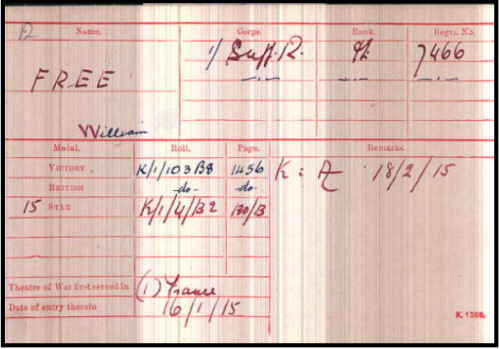 Name. Corps. Rank. Regtl. No.
FREE 1/ Suff. R. Pt. 7466
William
Medal. Roll. Page. Remarks.
VICTORY K/1/103B8 1456 K : A 18/2/15
BRITISH -do- -do-
15 STAR K/1/4/B2 130/B
Theatre of War first served in (1) France
Date of entry therein 16/1/15
K. 1380.